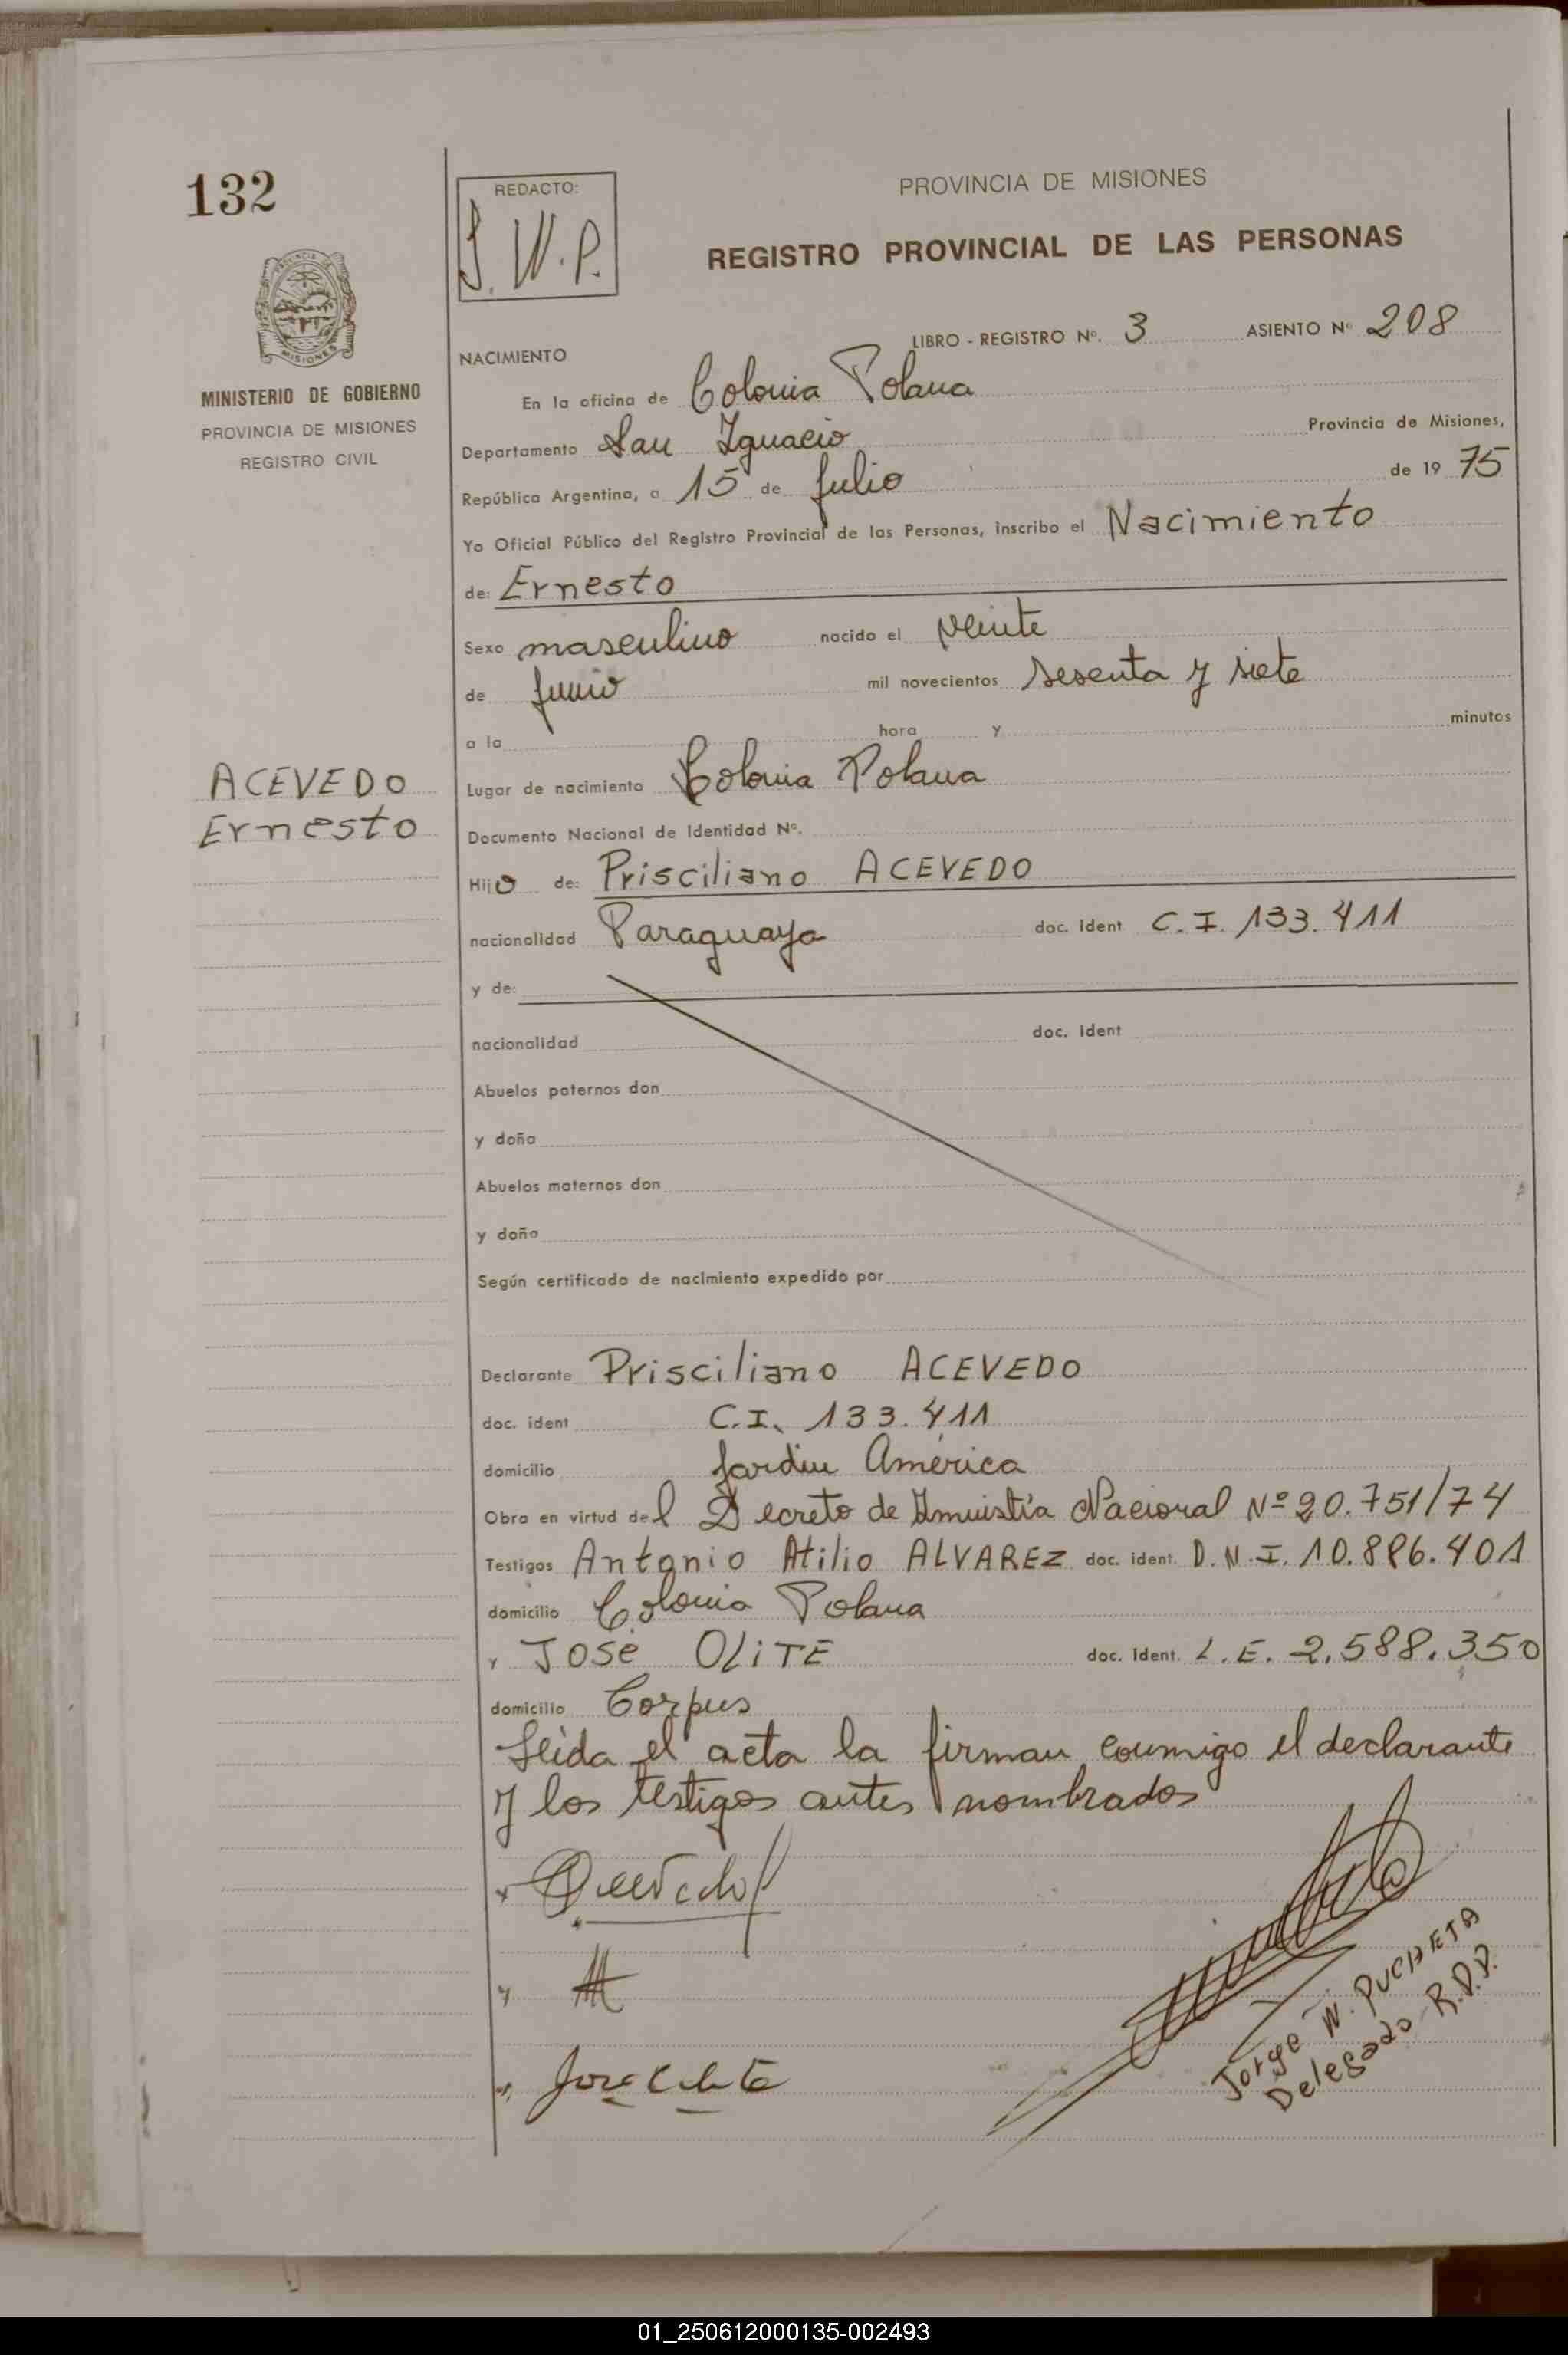 132
REDACTO:
J. W. P.
PROVINCIA DE MISIONES
REGISTRO PROVINCIAL DE LAS PERSONAS
PROVINCIA DE
MISIONES
MINISTERIO DE GOBIERNO
PROVINCIA DE MISIONES
REGISTRO CIVIL
LIBRO - REGISTRO Nº. 3 ASIENTO Nº 208
NACIMIENTO
En la oficina de Colonia Polana
Departamento San Ignacio Provincia de Misiones,
República Argentina, a 15 de Julio de 19 75
Yo Oficial Público del Registro Provincial de las Personas, inscribo el Nacimiento
de: Ernesto
Sexo masculino nacido el veinte
de Junio mil novecientos sesenta y siete
a la hora y minutos
ACEVEDO
Ernesto
Lugar de nacimiento Colonia Polana
Documento Nacional de Identidad Nº.
Hijo de: Prisciliano ACEVEDO
nacionalidad Paraguaya doc. Ident C. I. 133.411
y de:
nacionalidad doc. Ident
Abuelos paternos don
y doña
Abuelos maternos don
y doña
Según certificado de nacimiento expedido por
Declarante Prisciliano ACEVEDO
doc. ident C.I. 133.411
domicilio Jardin América
Obra en virtud del Decreto de Amnistía Nacional Nº 20.751/74
Testigos Antonio Atilio ALVAREZ doc. ident. D.N.I. 10.896.401
domicilio Colonia Polana
y José OLITE doc. Ident. L.E. 2.588.350
domicilio Corpus
Leída el acta la firman conmigo el declarante
y los testigos antes nombrados
Jorge W. PUCHETA
Delegado R.P.P.
01_250612000135-002493